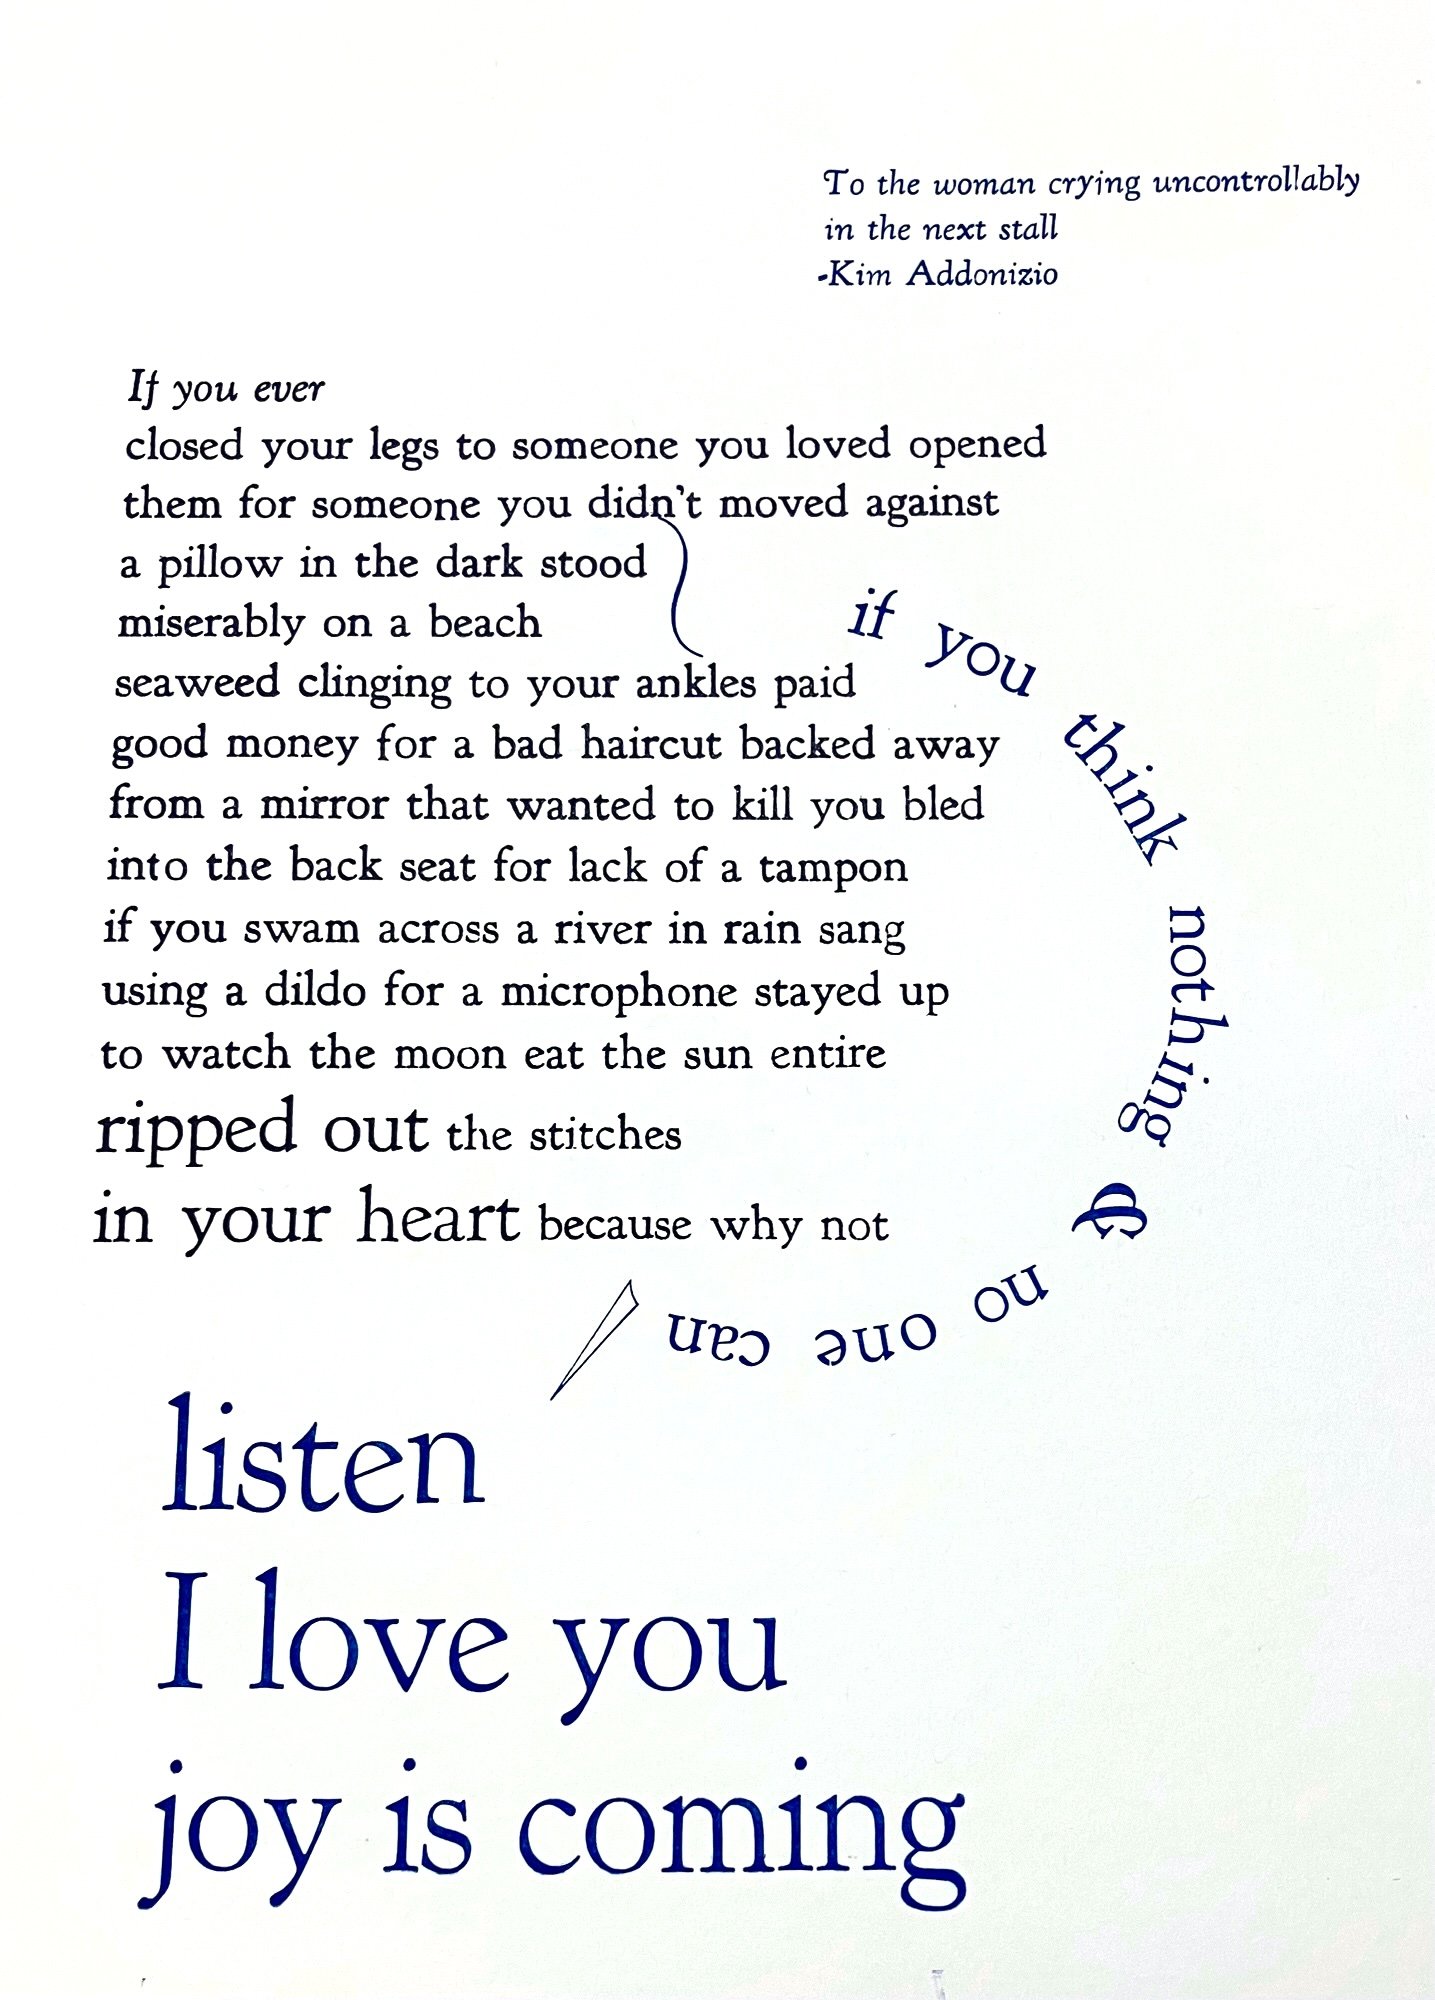 To the woman crying uncontrollably
in the next stall
-Kim Addonizio
If you ever
closed your legs to someone you loved opened
them for someone you didn't moved against
a pillow in the dark stood
miserably on a beach
seaweed clinging to your ankles paid
good money for a bad haircut backed away
from a mirror that wanted to kill you bled
into the back seat for lack of a tampon
if you swam across a river in rain sang
using a dildo for a microphone stayed up
to watch the moon eat the sun entire
ripped out the stitches
in your heart because why not
if you think nothing & no one can
listen
I love you
joy is coming